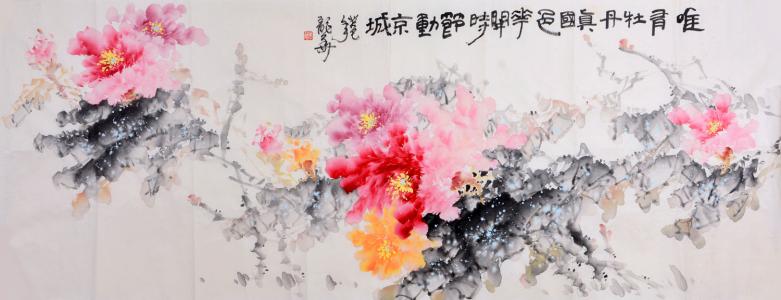 唯有牡丹真國色花開時節動京城